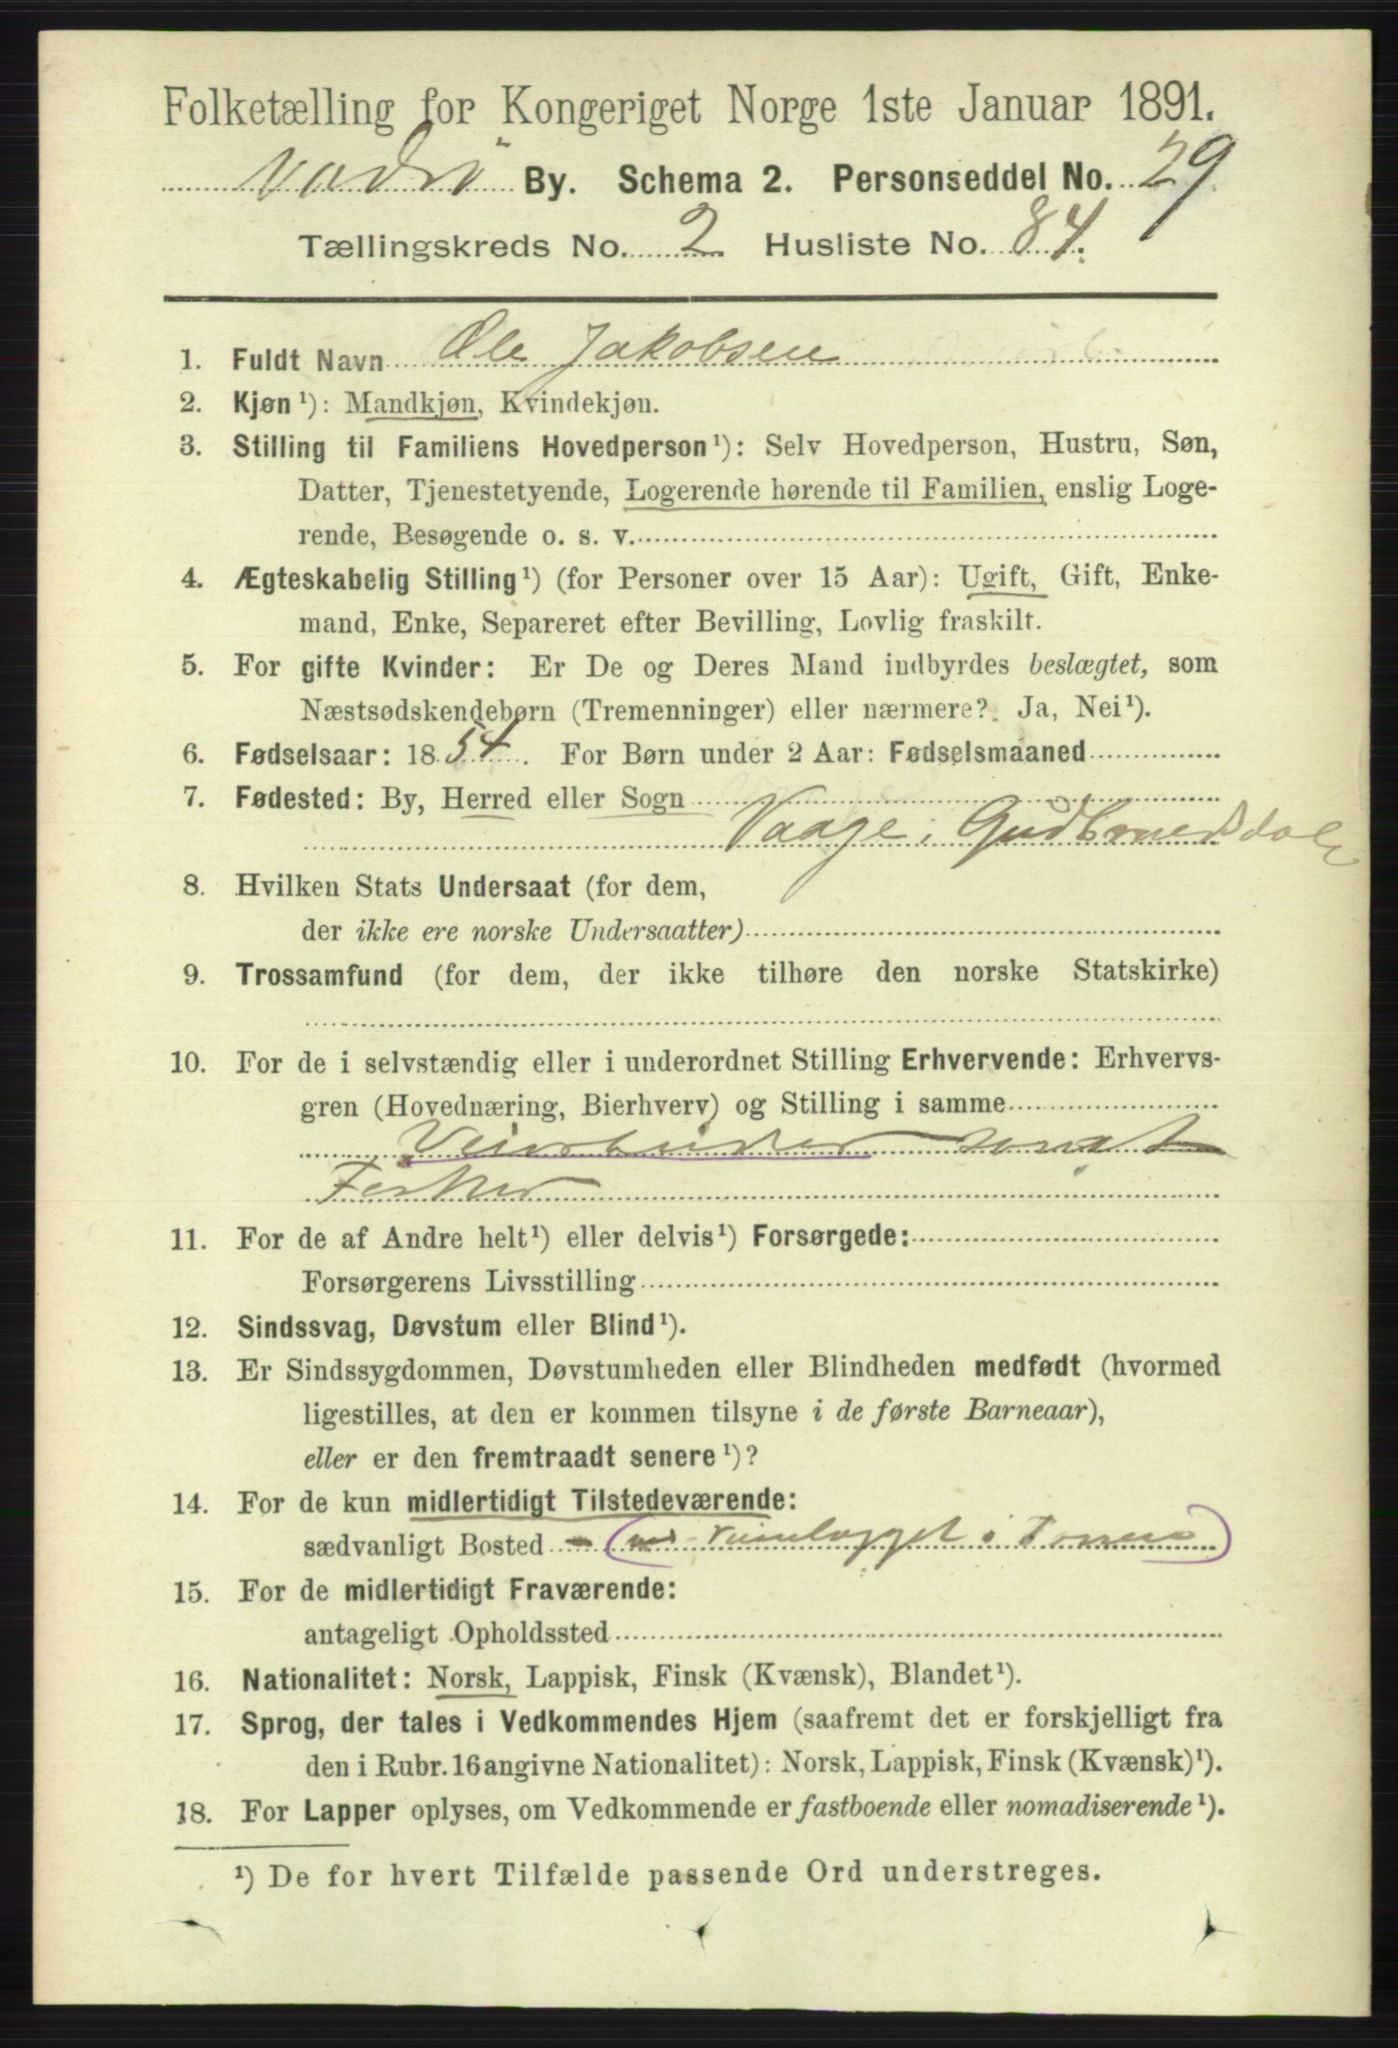 Folketælling for Kongeriget Norge 1ste Januar 1891.
Vadsö By. Schema 2. Personseddel No. 29
Tællingskreds No. 2 Husliste No. 84.
1. Fuldt Navn Ole Jakobsen
2. Kjøn¹): Mandkjøn, Kvindekjøn.
3. Stilling til Familiens Hovedperson¹): Selv Hovedperson, Hustru, Søn,
Datter, Tjenestetyende, Logerende hørende til Familien, enslig Loge-
rende, Besøgende o. s. v.
4. Ægteskabelig Stilling¹) (for Personer over 15 Aar): Ugift, Gift, Enke-
mand, Enke, Separeret efter Bevilling, Lovlig fraskilt.
5. For gifte Kvinder: Er De og Deres Mand indbyrdes beslægtet, som
Næstsødskendebørn (Tremenninger) eller nærmere? Ja, Nei¹).
6. Fødselsaar: 1854. For Børn under 2 Aar: Fødselsmaaned
7. Fødested: By, Herred eller Sogn
Vaage i Gudbrandsdale
8. Hvilken Stats Undersaat (for dem,
der ikke ere norske Undersaatter)
9. Trossamfund (for dem, der ikke tilhøre den norske Statskirke)
10. For de i selvstændig eller i underordnet Stilling Erhvervende: Erhvervs-
gren (Hovednæring, Bierhverv) og Stilling i samme
Veiarbeider samt
Fisker
11. For de af Andre helt¹) eller delvis¹) Forsørgede:
Forsørgerens Livsstilling
12. Sindssvag, Døvstum eller Blind¹).
13. Er Sindssygdommen, Døvstumheden eller Blindheden medfødt (hvormed
ligestilles, at den er kommen tilsyne i de første Barneaar),
eller er den fremtraadt senere¹)?
14. For de kun midlertidigt Tilstedeværende:
sædvanligt Bosted - (ved i
15. For de midlertidigt Fraværende:
antageligt Opholdssted
16. Nationalitet: Norsk, Lappisk, Finsk (Kvænsk), Blandet¹).
17. Sprog, der tales i Vedkommendes Hjem (saafremt det er forskjelligt fra
den i Rubr. 16 angivne Nationalitet): Norsk, Lappisk, Finsk (Kvænsk)¹).
18. For Lapper oplyses, om Vedkommende er fastboende eller nomadiserende¹).
¹) De for hvert Tilfælde passende Ord understreges.